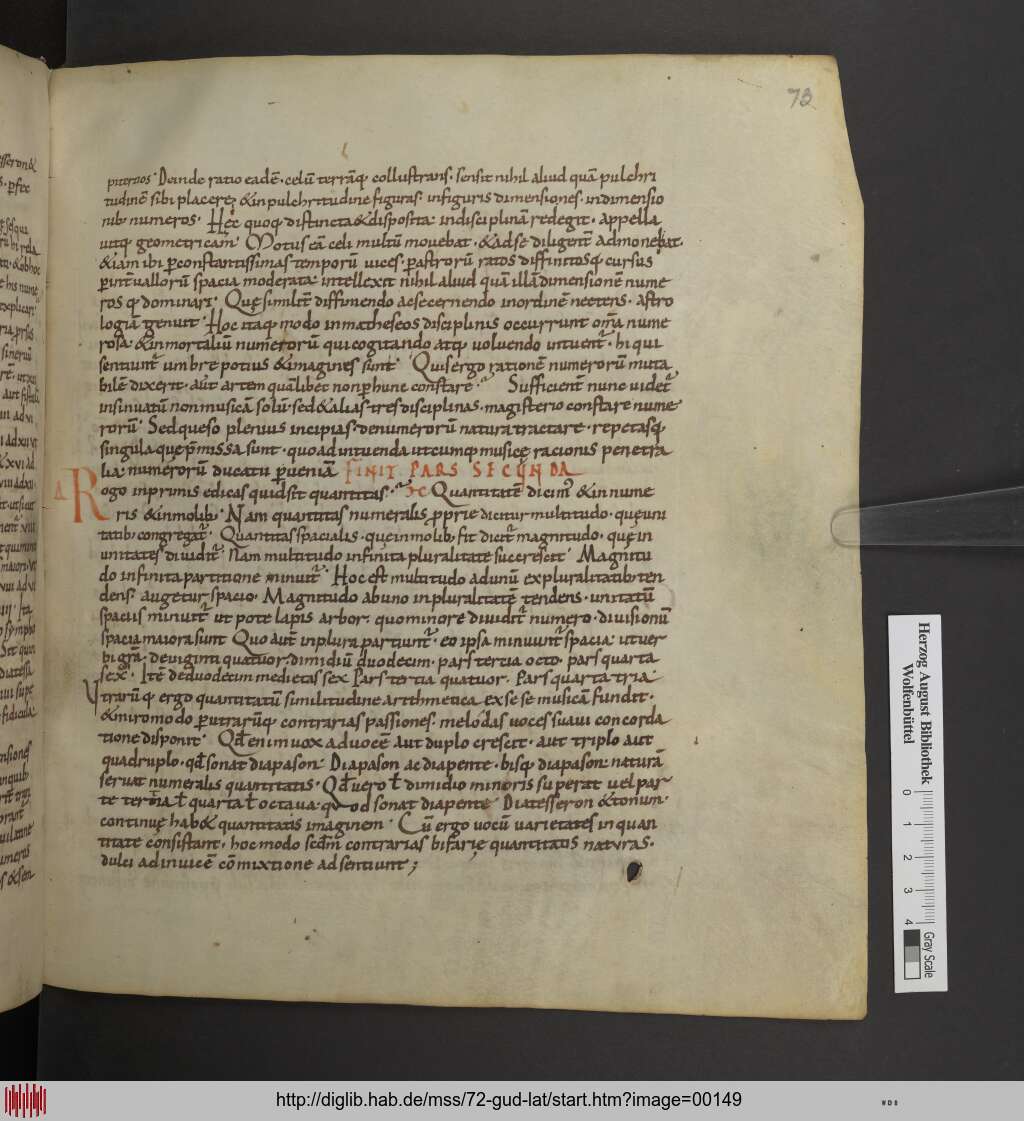 73
piternos· Deinde ratio eadē· celū terrāq; collustrans· sensit nihil aliud quā pulchri
tudinē sibi placere; & in pulchritudine figuras· in figuris dimensiones· in dimensio
nib; numeros· Hęc quoq; distincta & disposita· in disciplinā redegit· appella
uitq; geometricam· Motus eā celi multū mouebat· & ad se diligent̄ admonebat·
& iam ibi p constantissimas temporū uices· p astrorū ratos diffinitosq; cursus
p interuallorū spacia moderata· intellexit nihil aliud quā illā dimensionē nume
ros q; dominari· Quę similit̄ diffiniendo ac secernendo in ordinē nectens· astro
logiā genuit· Hoc itaq; modo in matheseos disciplinis occurrunt om̄a nume
rosa· & inmortaliū numerorū qui cogitando atq; uoluendo intuent̄· hi qui
sentiunt̄ umbrę potius & imagines sunt· Quis ergo rationē numerorū muta
bilē dixerit· aut artem quālibet non p hunc constare· Sufficient̄ nunc uidet̄
insinuatū non musicā solū· sed & alias tres disciplinas· magisterio constare nume
rorū· Sed queso plenius incipias· de numerorū natura tractare· repetasq;
singula que p̄missa sunt· quo ad intuenda utcumq; musicę racionis penetra
lia· numerorū ducatu p ueniā FINIT PARS SECUNDA
Rogo inprimis edicas quid sit quantitas· Quantitatē dicim; & in nume
ris & in molib;· Nam quantitas numeralis pprie dicitur multitudo· quę uni
tatib; congregat̄· Quantitas spacialis· quę in molib; fit dicit̄ magnitudo· quę in
unitates diuidit̄· Nam multitudo infinita pluralitate succrescit· Magnitu
do infinita partitione minuit̄· Hoc est multitudo ad unū ex pluralitatib; ten
dens· augetur spacio· Magnitudo ab uno in pluralitatē tendens· unitatū
spaciis minuit̄ ut pote lapis arbor· quo minore diuidit̄ numero· diuisionū
spacia maiora sunt Quo aut̄ in plura partiunt̄· eo ipsa minuunt̄ spacia· ut uer
bi grā· de uiginti quatuor· dimidiū duodecim· pars tertia octo· pars quarta
sex· Itē de duodecim medietas sex Pars tertia quatuor· Pars quarta tria·
Utrarūq; ergo quantitatū similitudine arithmetica· ex se se musicā fundit·
& miro modo p utrarūq; contrarias passiones· melodas uoces suaui concorda
tione disponit· Qd̄ enim uox ad uocē aut duplo crescit· aut triplo aut
quadruplo· qd̄ sonat diapason· Diapason ac diapente· bisq; diapason· naturā
seruat numeralis quantitatis· Qd̄ uero ł dimidio minoris superat uel par
te tertia ł quarta ł octaua· quod sonat diapente· Diatesseron & tonum·
continuę hab& quantitatis imaginem· Cū ergo uocū uarietates in quan
titate consistant· hoc modo scdm̄ contrarias bifarię quantitatis naturas·
dulci ad inuicē cōmixtione adsentiunt;
Herzog August Bibliothek
Wolfenbüttel
0 1 2 3 4
Gray Scale
http://diglib.hab.de/mss/72-gud-lat/start.htm?image=00149